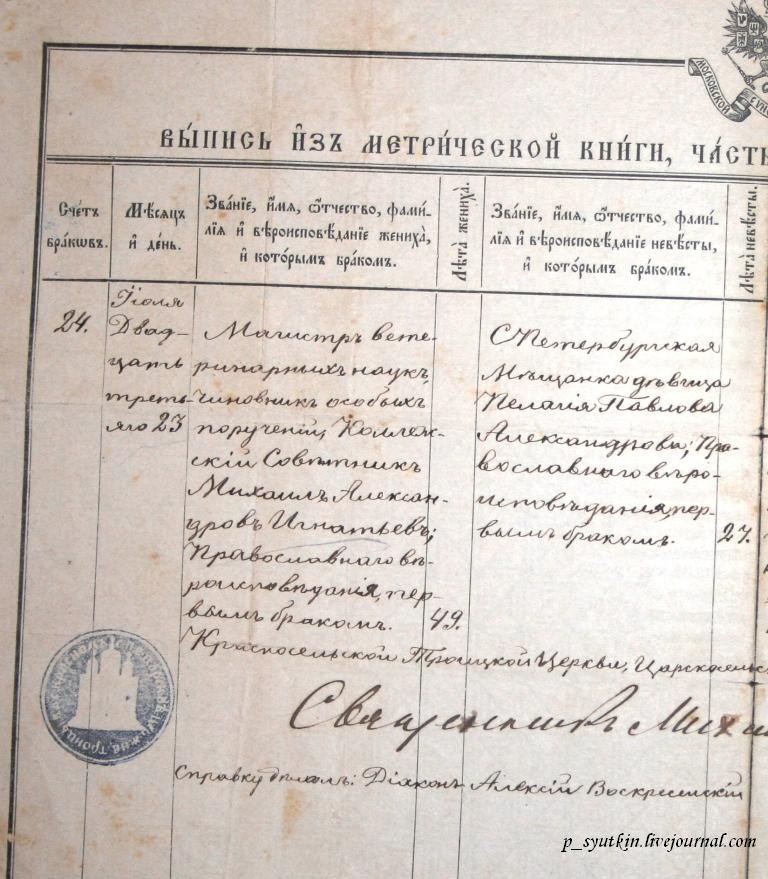 МОСКОВСКОЙ
ВЫ́ПИСЬ И҆ЗЪ МЕТРИ́ЧЕСКОЙ КНИ́ГИ, ЧА́СТЬ
Сче́тъ бра́кѡвъ.
Мѣ́сѧцъ и҆ де́нь.
Зва́нїе, и҆́мѧ, ѻ҆́тчество, фами́-
лїѧ и҆ вѣроисповѣ́данїе жениха̀,
и҆ кото́рымъ бра́комъ.
Лѣ́та̀ жениха̀.
Зва́нїе, и҆́мѧ, ѻ҆́тчество, фами́-
лїѧ и҆ вѣроисповѣ́данїе невѣ́сты,
и҆ кото́рымъ бра́комъ.
Лѣ́та̀ невѣ́сты.
24.
Іюля
Двад-
цать
треть-
яго 23
Магистръ вете-
ринарныхъ наукъ,
чиновникъ особыхъ
порученій, Коллеж-
скій Совѣтникъ
Михаилъ Алексан-
дровъ Игнатьевъ;
Православнаго вѣ-
роисповѣданія, пер-
вымъ бракомъ.
49.
СПетербургская
Мѣщанка дѣвица
Пелагія Павлова
Александрова; Пра-
вославнаго вѣро-
исповѣданія, пер-
вымъ бракомъ.
27.
Красносельской Троицкой Церкви, Царскосельс
Священникъ Миха
Справку дѣлалъ: Діаконъ Алексій Воскресенскій
p_syutkin.livejournal.com